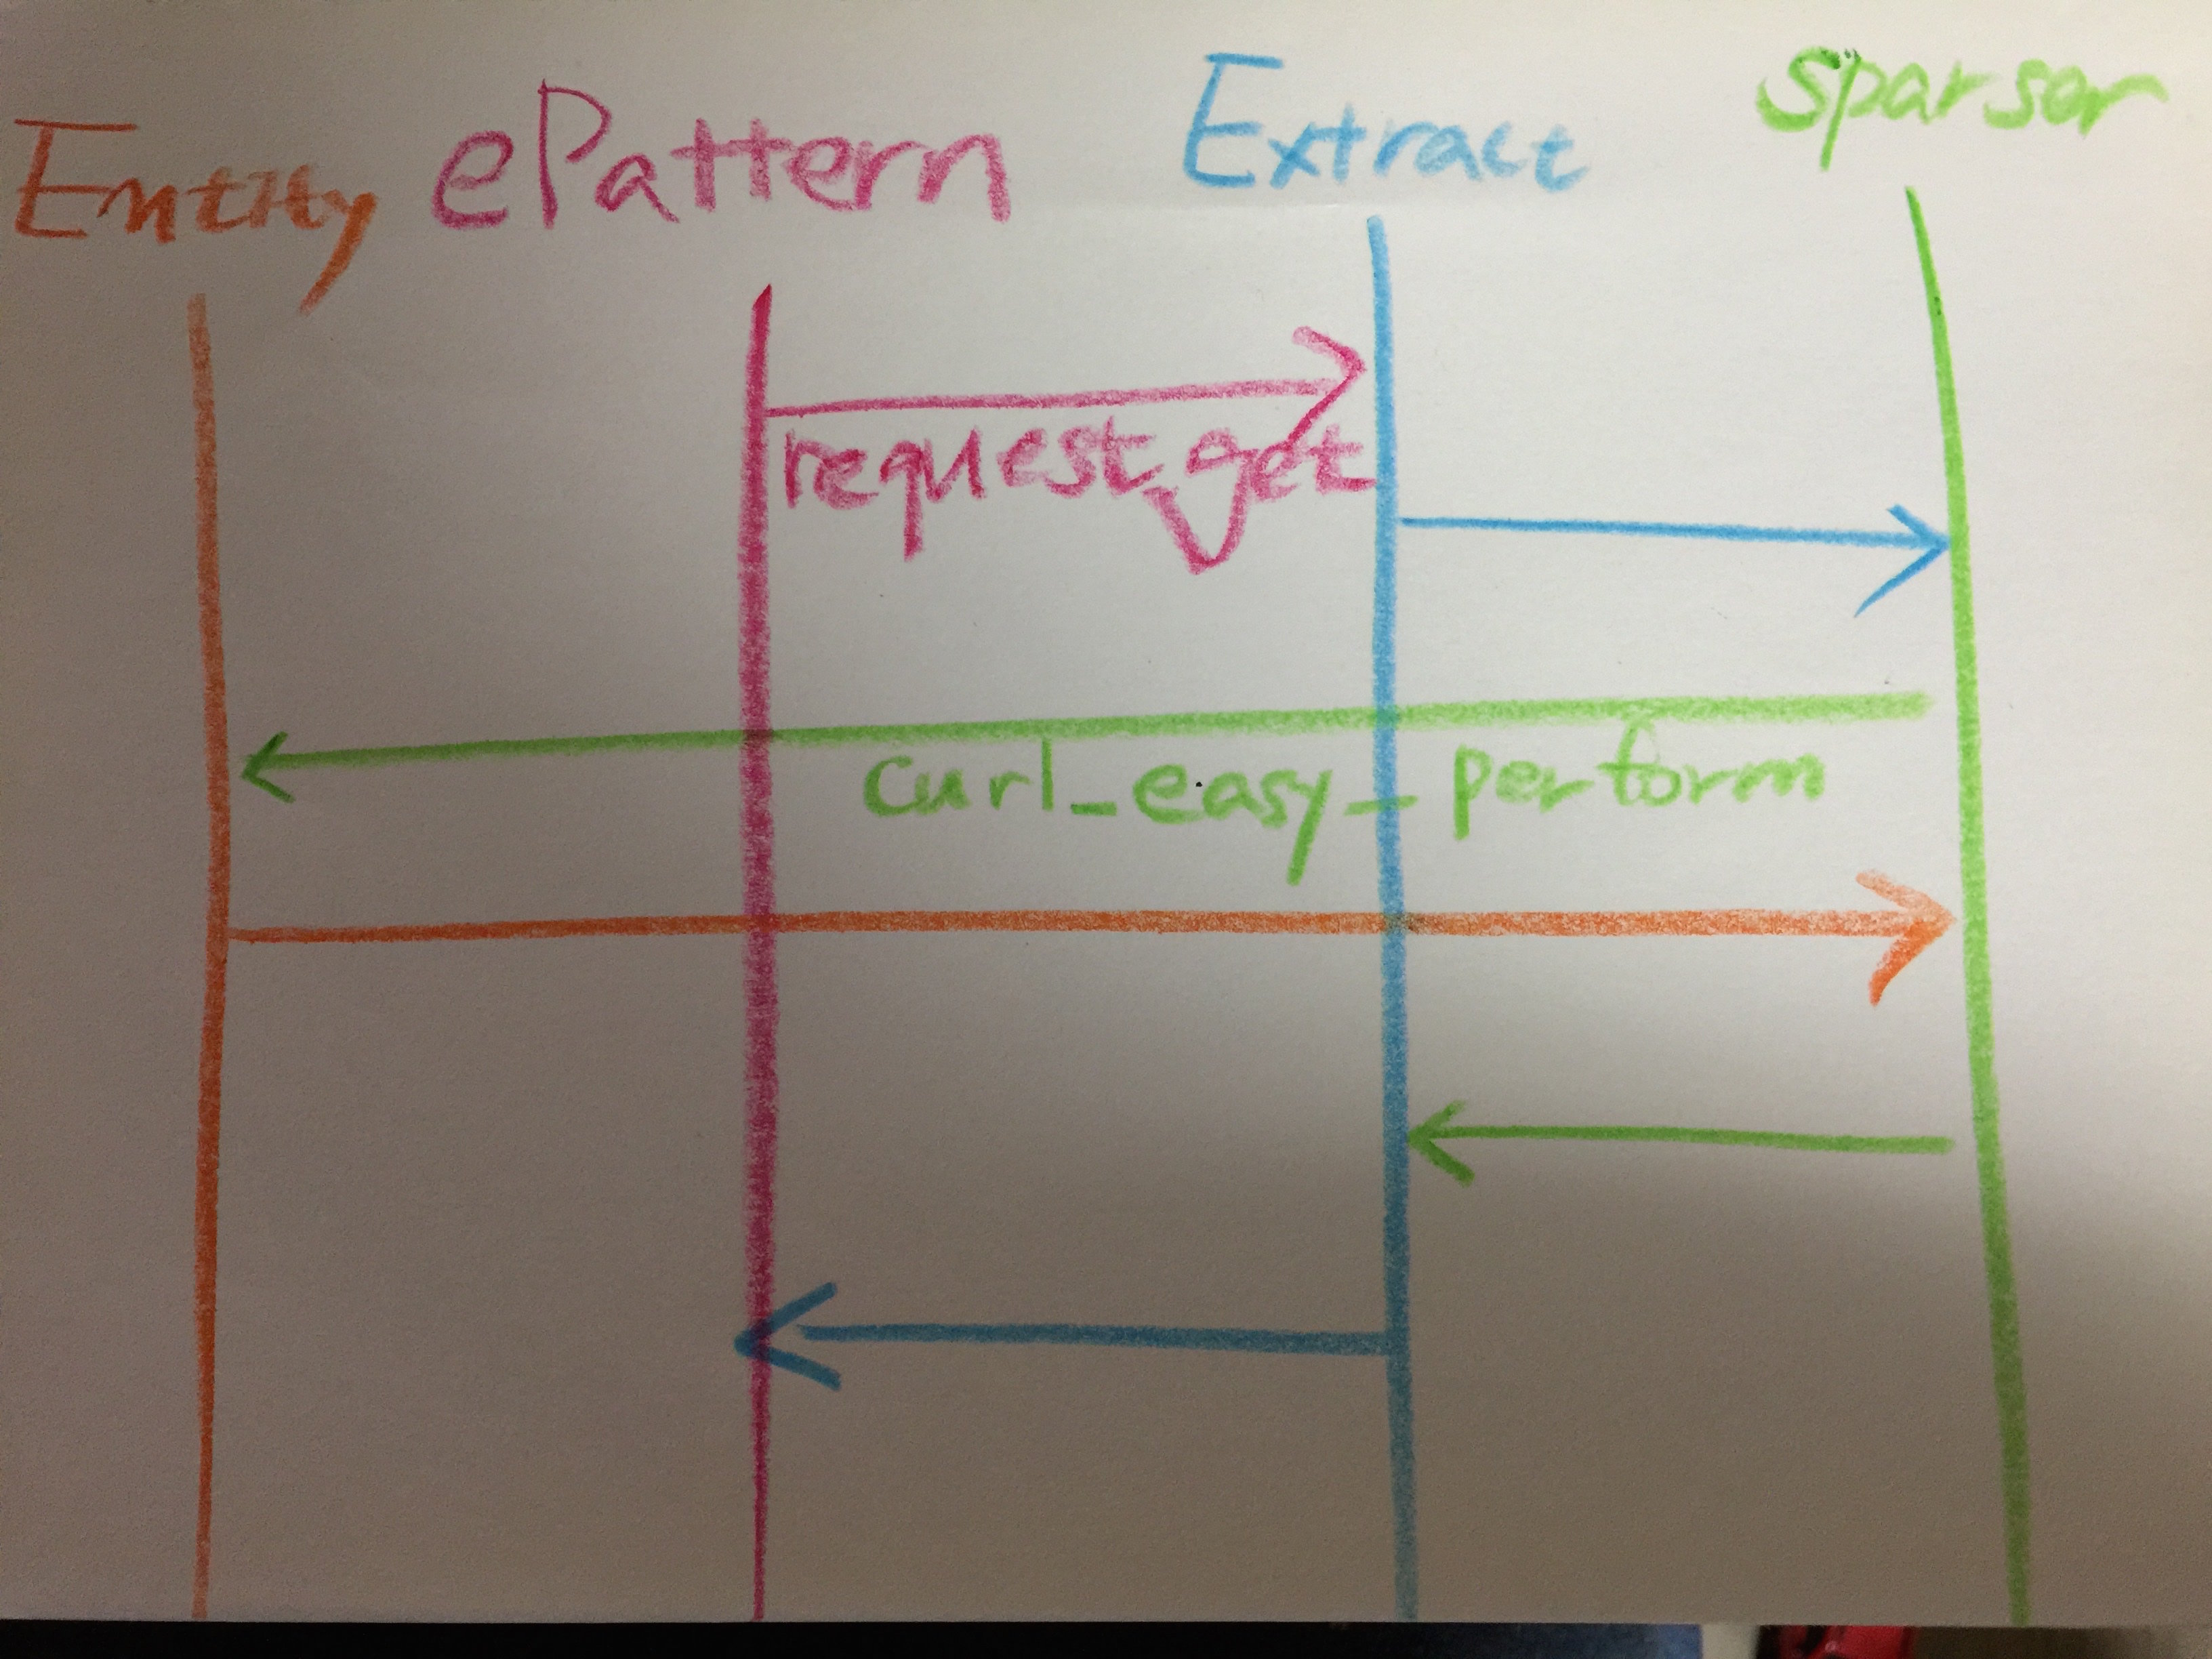 Entity ePattern Extract sparser
request_get
curl_easy_perform